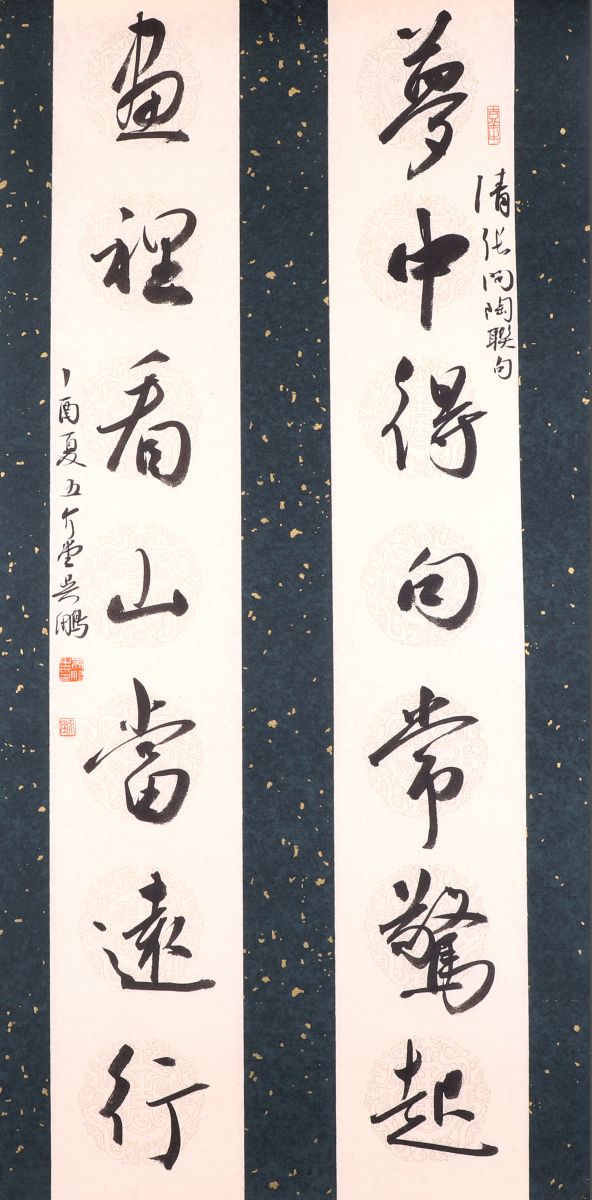 夢中得句常驚起
清張問陶聯句
畫裡看山當遠行
丁酉夏五个堂吳鵬